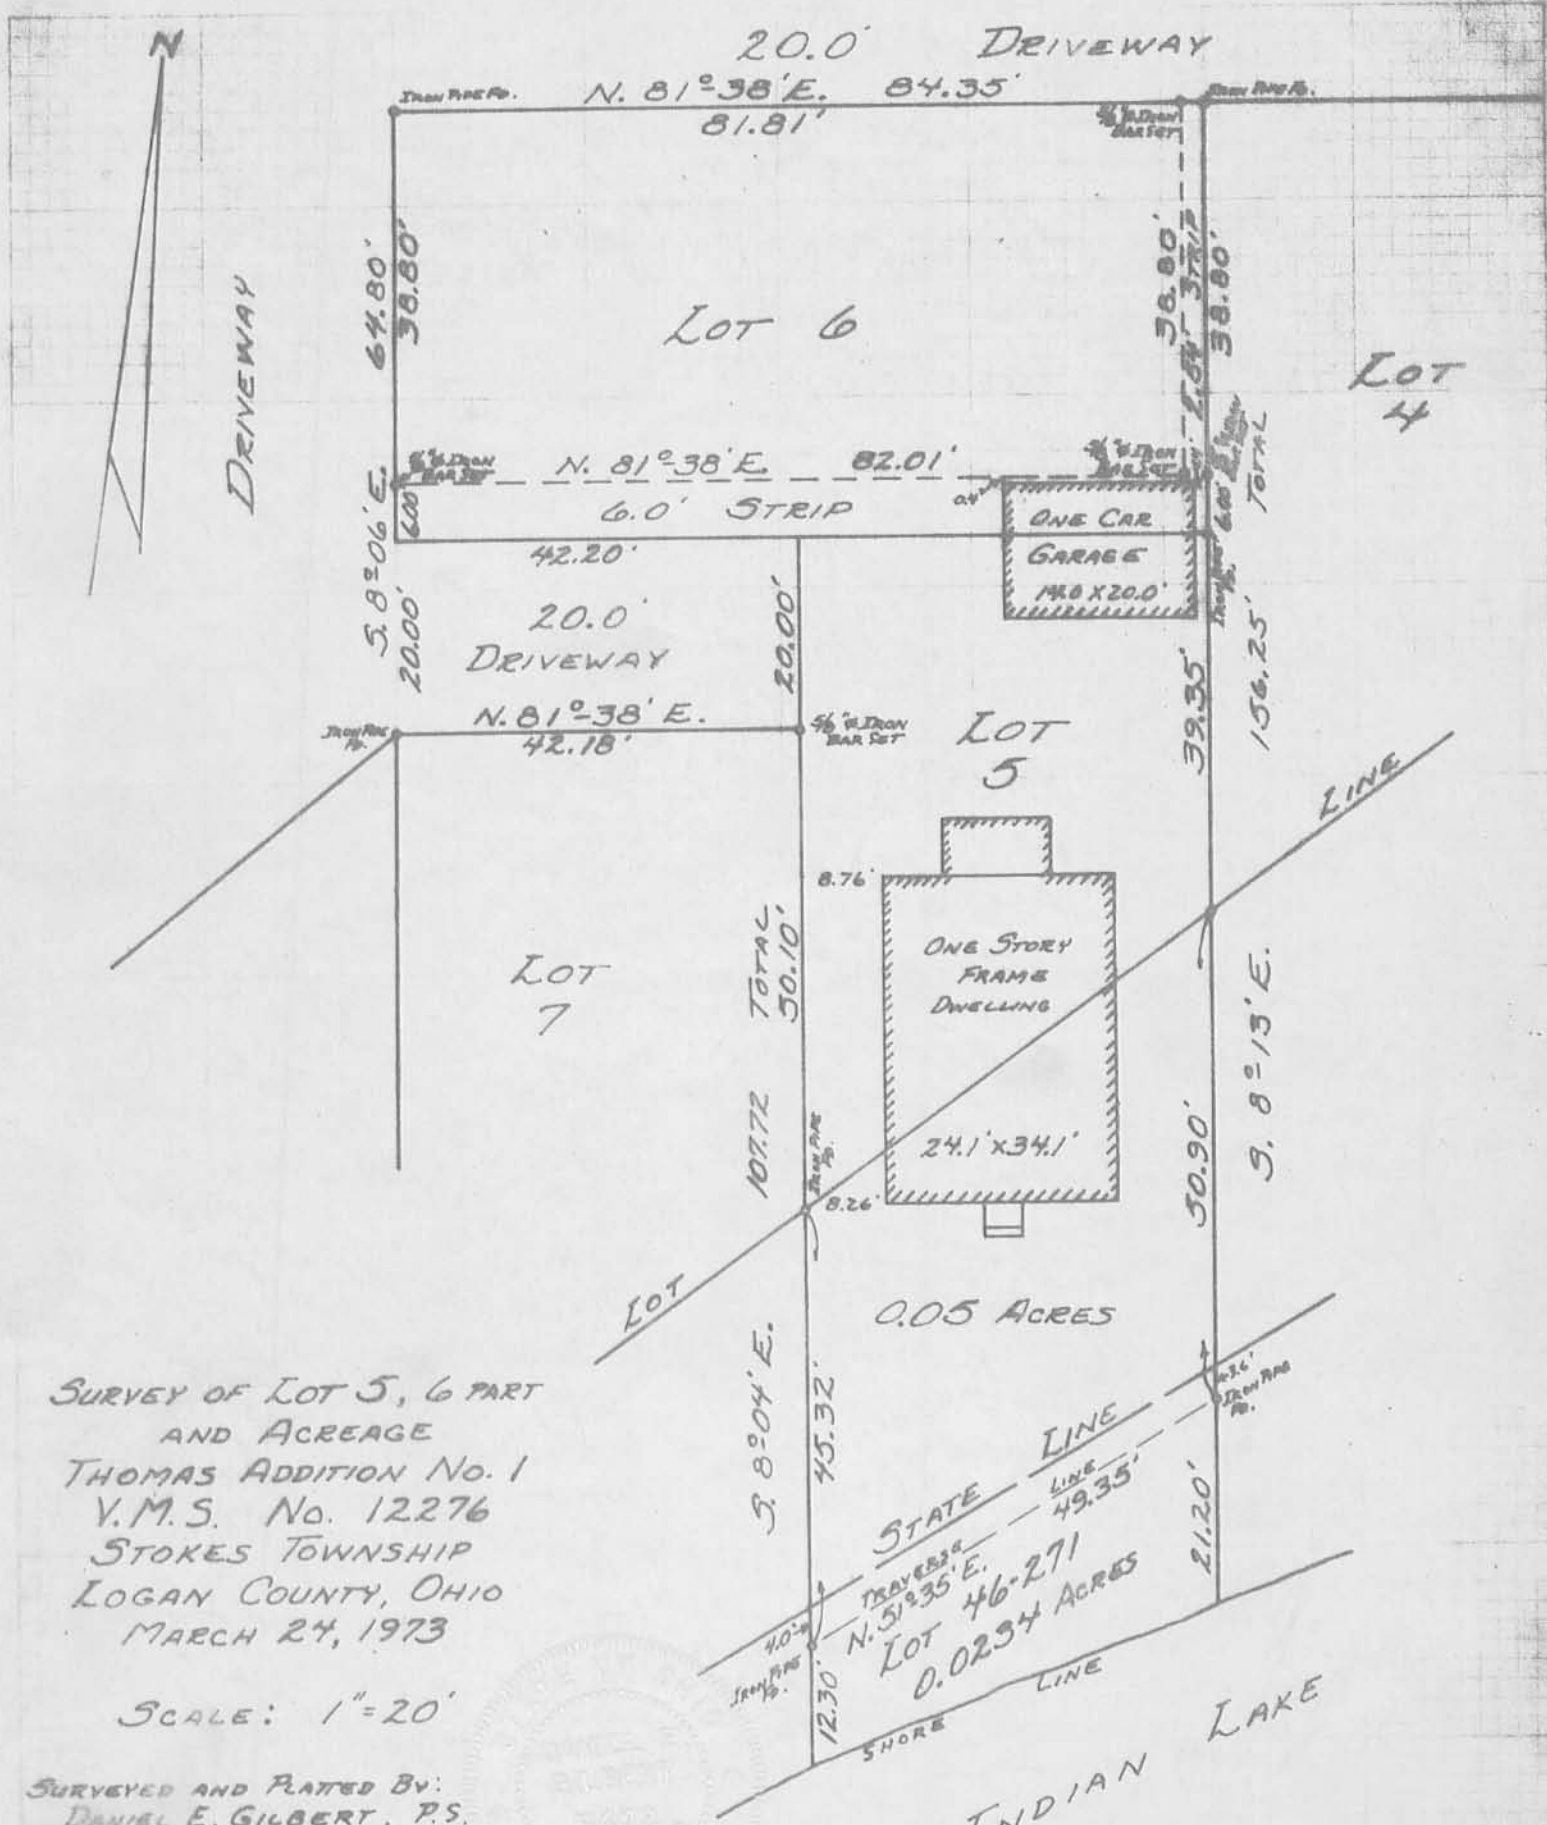 N
20.0' DRIVEWAY
IRON PIPE FD.
N. 81°-38' E. 84.35'
IRON PIPE FD.
81.81'
5/8"ø IRON
BAR SET
64.80'
38.80'
38.80'
2.84' STRIP
38.80'
DRIVEWAY
LOT 6
LOT
4
5/8"ø IRON
BAR SET
N. 81°-38' E. 82.01'
5/8"ø IRON
BAR SET
TOTAL
156.25'
S. 8°-06' E.
6.00'
6.0' STRIP
0.4'
6.00'
ONE CAR
GARAGE
14.0 X 20.0'
IRON PIPE
FD.
42.20'
20.00'
20.0'
DRIVEWAY
20.00'
39.35'
N. 81°-38' E.
IRON PIPE
FD.
42.18'
5/8"ø IRON
BAR SET
LOT
5
LINE
8.76'
ONE STORY
FRAME
DWELLING
24.1' X 34.1'
LOT
7
107.72 TOTAL
50.10'
IRON PIPE
FD.
8.26'
S. 8°-13' E.
50.90'
LOT
0.05 ACRES
S. 8°-04' E.
45.32'
IRON PIPE
FD.
STATE LINE
TRAVERSE LINE
N. 51°35' E. 49.35'
LOT 46-271
0.0234 ACRES
21.20'
4.0'
IRON PIPE
FD.
12.30'
SHORE LINE
INDIAN LAKE
SURVEY OF LOT 5, 6 PART
AND ACREAGE
THOMAS ADDITION NO. 1
V.M.S. NO. 12276
STOKES TOWNSHIP
LOGAN COUNTY, OHIO
MARCH 24, 1973
SCALE: 1"=20'
SURVEYED AND PLATTED BY:
DANIEL E. GILBERT, P.S.